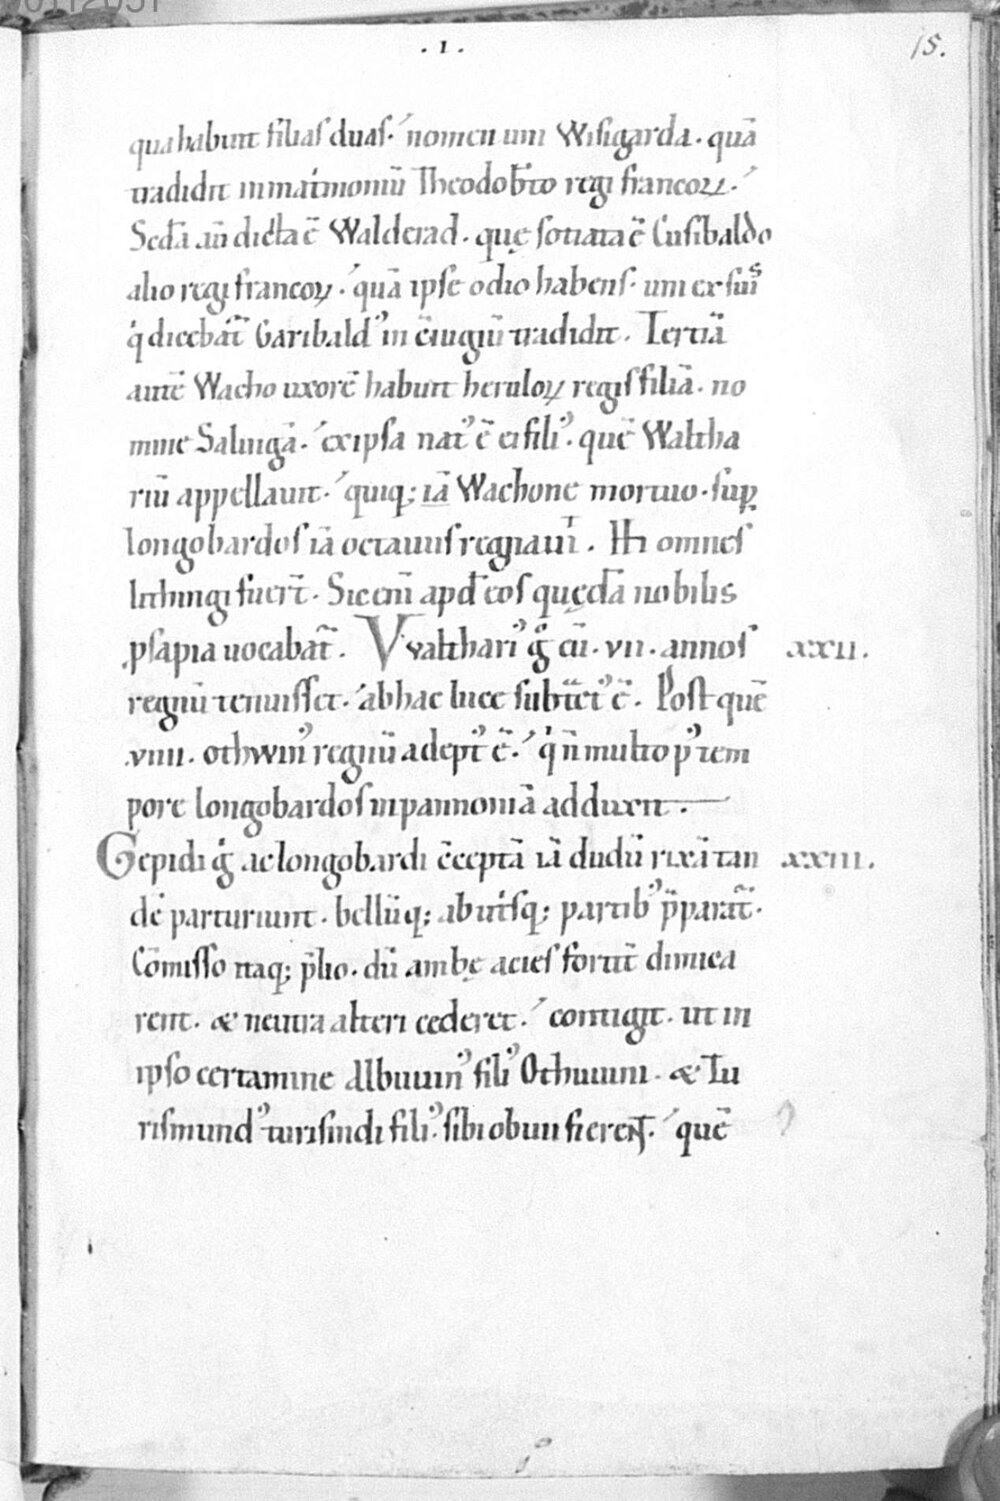 · I ·
15.
qua habuit filias duas· nomen uni Wisigarda· quā
tradidit in mat͛imoniū Theodob̄to regi francoꝝ·
Scd̄a aū dicta ē Walderad· quę sotiata ē Cusibaldo
alio regi francoꝝ· quā ipse odio habens· uni ex suis
q̇ dicebat̄ Garibaldꝰ in c̄iugiū tradidit· Tertiā
autē Wacho uxorē habuit heruloꝝ regis filiā· no
mine Salingā· ex ipsa natꝰ ē ei filiꝰ· quē Waltha
riū appellauit· quiq; iā Wachone mortuo· suꝑ
longobardos iā octauus regnauit· Hi omnes
lithingi fuer̄t· Sic eni apd̄ eos quędā nobilis
ꝓsapia uocabat̄· Vvalthariꝰ g̊ cū· vii· annos xxii.
regnū tenuisset· ab hac luce subt͛ctꝰ ē· Post quē
.viiii· othwinꝰ regnū adeptꝰ ē· q̇ n̄ multo pꝰ tem
pore longobardos in pannoniā adduxit·
Gepidi g̊ ac longobardi c̄ceptā iā dudū rixā tan xxiii.
dē parturiunt· bellūq; ab ut͛sq; partibꝰ p̄parat̄·
Cōmisso itaq; p̄lio· dū ambę acies fortit̄ dimica
rent· & neutra alteri cederet· contigit· ut in
ipso certamine Albuuinꝰ filiꝰ Othuuini· & Tu
rismundꝰ turisindi filiꝰ· sibi obuii fierent· quē